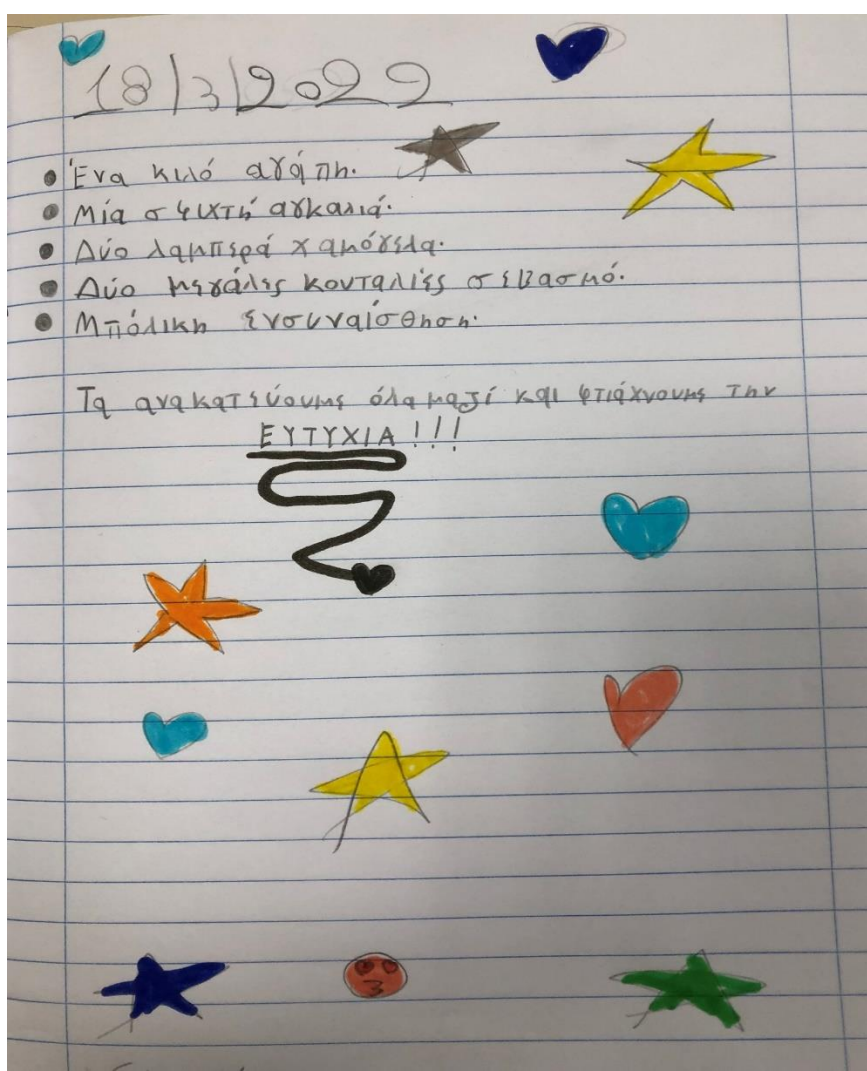 18/3/2022
Ένα κιλό αγάπη.
Μία σφιχτή αγκαλιά.
Δύο λαμπερά χαμόγελα.
Δύο μεγάλες κουταλιές σεβασμό.
Μπόλικη ενσυναίσθηση.
Τα ανακατεύουμε όλα μαζί και φτιάχνουμε την
ΕΥΤΥΧΙΑ!!!